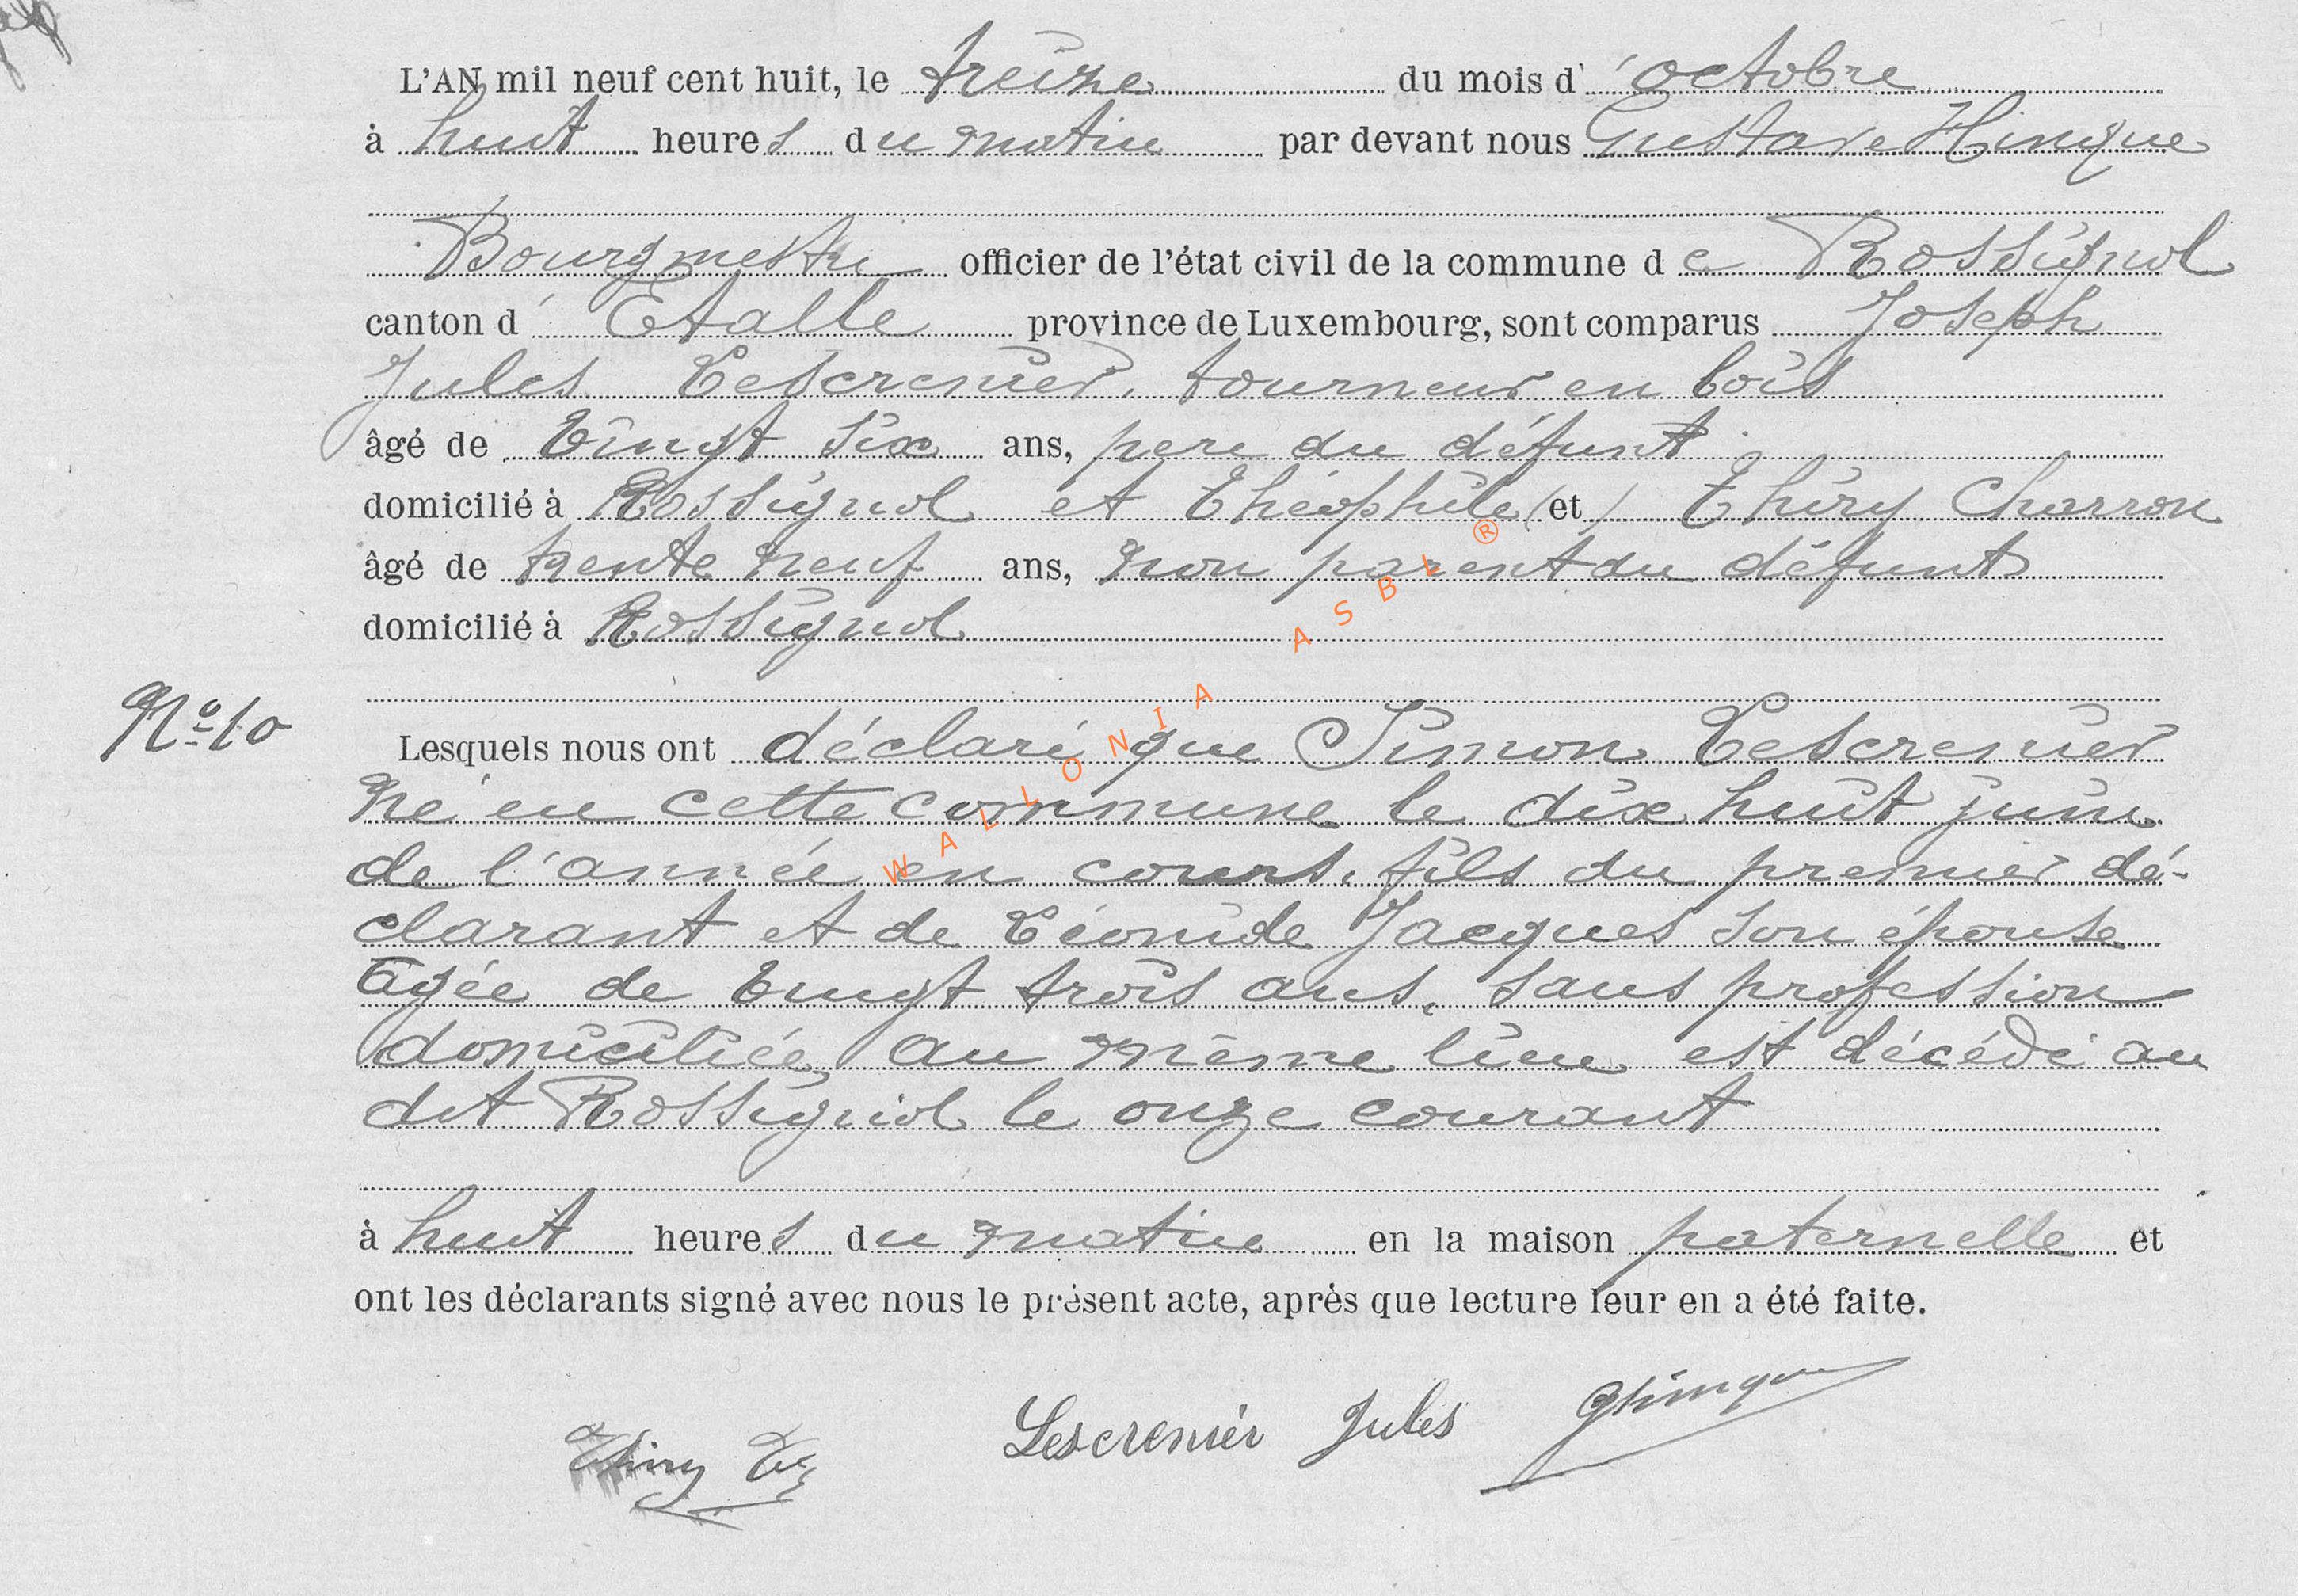 L'AN mil neuf cent huit, le treize du mois d'octobre
à huit heures du matin par devant nous Gustave Hinque
Bourgmestre officier de l'état civil de la commune de Rossignol
canton d'Etalle province de Luxembourg, sont comparus Joseph
Jules Lescrenier, tourneur en bois
âgé de vingt six ans, pere du défunt
domicilié à Rossignol et Théophile (et) Thiry Charron
âgé de trente neuf ans, non parent du défunt
domicilié à Rossignol
Nº 10
Lesquels nous ont déclaré que Simon Lescrenier
né en cette commune le dix huit juin
de l'année en cours, fils du premier dé-
clarant et de Léonide Jacques son épouse
âgée de vingt trois ans, sans profession
domiciliée au même lieu est décédé au
dit Rossignol le onze courant
à huit heures du matin en la maison paternelle et
ont les déclarants signé avec nous le présent acte, après que lecture leur en a été faite.
Thiry Lescrenier Jules GHinque
WALLONIA ASBL ®